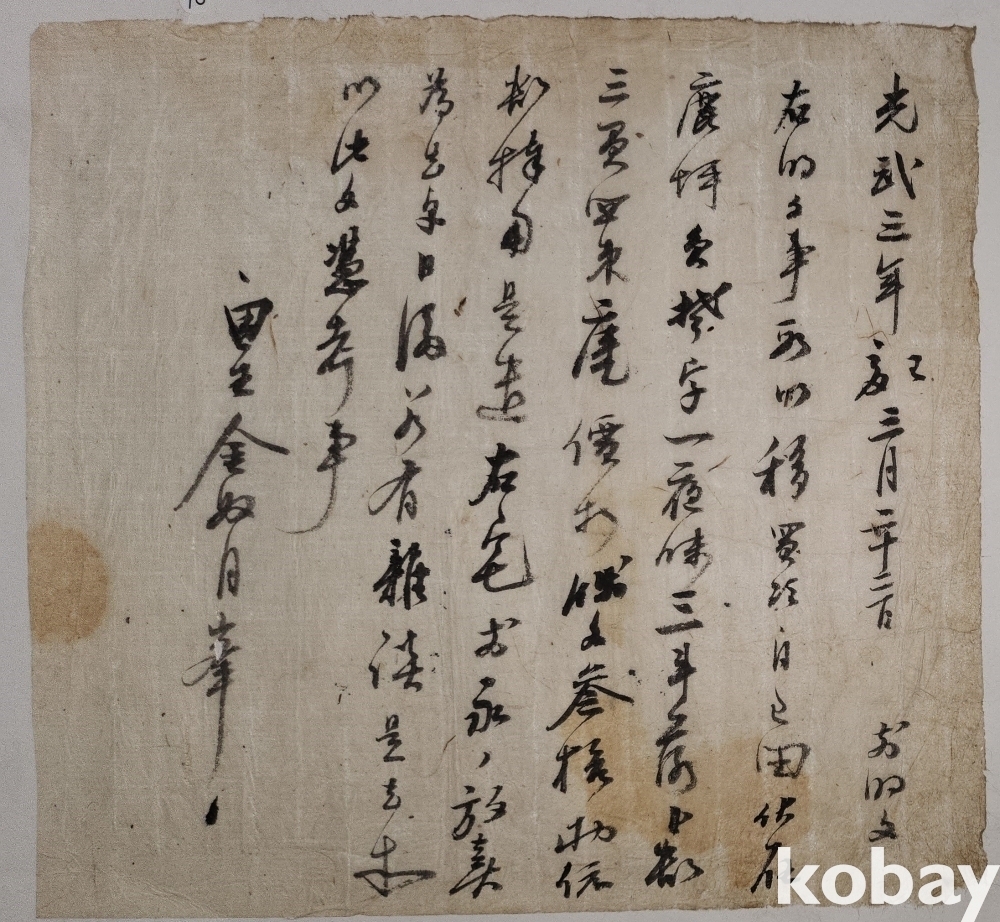 光武三年 三月二十二日 前明文
右明文事段以移買次自己田伏在
鹿坪員 字一夜味三斗落卜數
三負四束庫價折錢文參拾兩依
數捧用是遣右宅前永永放賣
爲去乎日後若有雜談是去等
以此文憑考事
田主金奴月奉
kobay